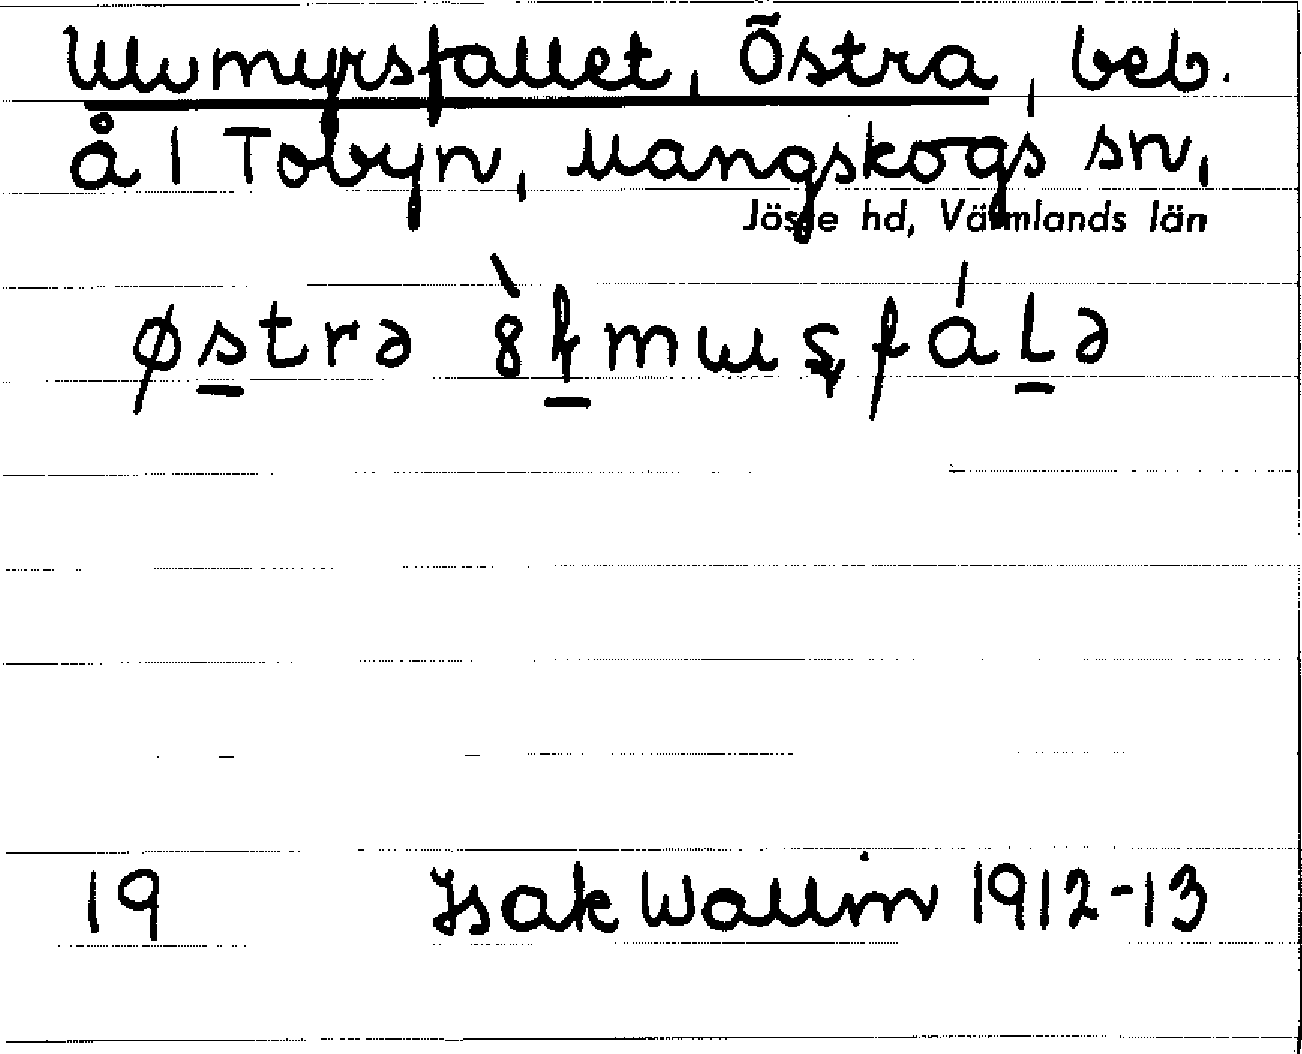 Ulvmyrsfallet, Östra, beb.
å 1 Tobyn, Mangskogs sn,
Jösse hd, Värmlands län
østrə
19 Isak Wallin 1912-13